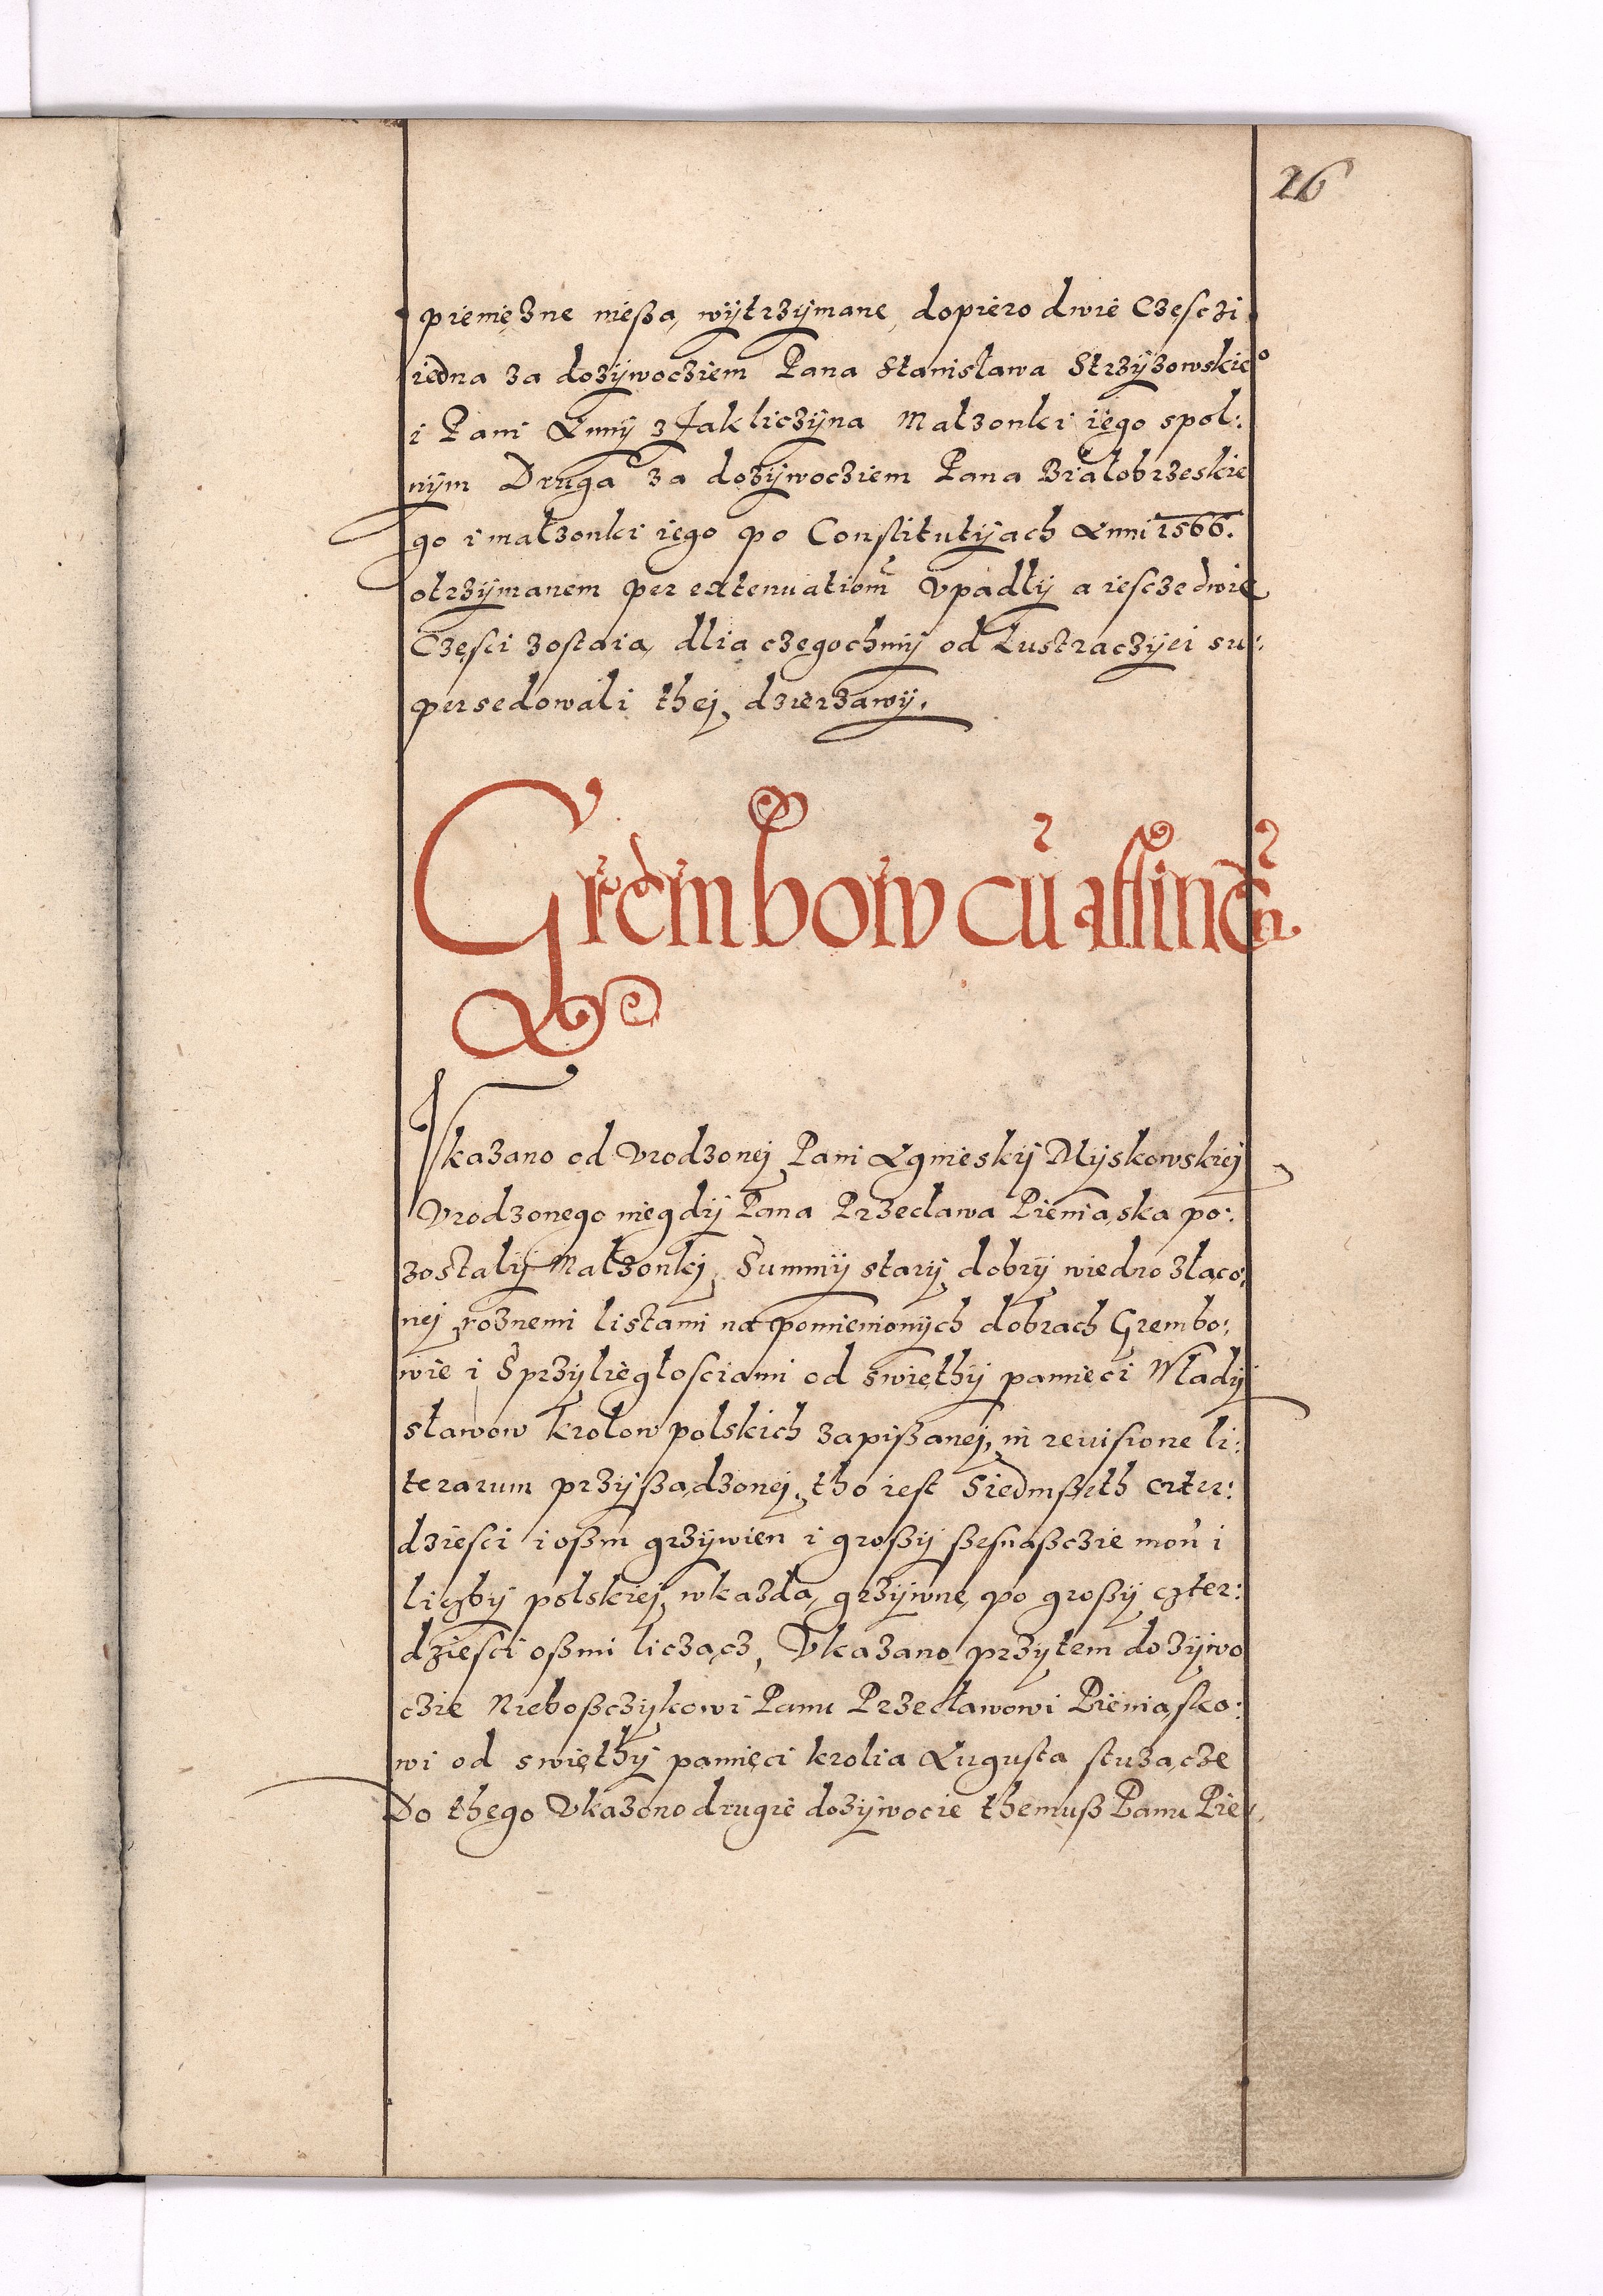 26
pieniężne nießą wytrzÿmane, dopiero dwie Częsczi
iedna za dozÿwocziem Pana Stanisława Strzÿzowskie°
i Pani Annÿ z Jakliczÿna Malzonki iego spol:
nÿm Druga za dozÿwocziem Pana Białobrzeskie
go i małzonki iego po Constitutÿach Anni 1566.
otrzÿmanem per extenuationē Vpadłÿ a iescze dwie
Częsci zostaią dlia czegochmÿ od Lustraczÿei su:
persedowali thej dzierzawÿ.
Grembow cū attinen̄
Vkazano od Vrodzonej Pani Agnieskÿ Mÿskowskiej
Vrodzonego niegdÿ Pana Przecława Pieniąska po:
zostałÿ Małzonkj Summÿ starÿ dobrÿ wiedno złąco:
nej roznemi listami na pomienionÿch dobrach Grembo:
wie i S przÿliegłosciami od swięthÿ pamięci Władÿ
sławow krolow polskich zapißanej, in reuisione li:
terarum przÿsßądzonej, tho iest Siedmßeth czter:
dziesci i oßm grzÿwien i großÿ ßesnaßczie mon i
liczbÿ polskiej wkazdą grzÿwnę po großÿ czter:
dziesci oßmi licząncz, Vkazano przÿtem dozÿwo
czie Nieboßczÿkowi Panu Przecławowi Pieniąsko:
wi od swięthÿ pamięci krolia Augusta słuzącze
Do thego Vkazono drugie dozÿwocie themuß Panu Pie